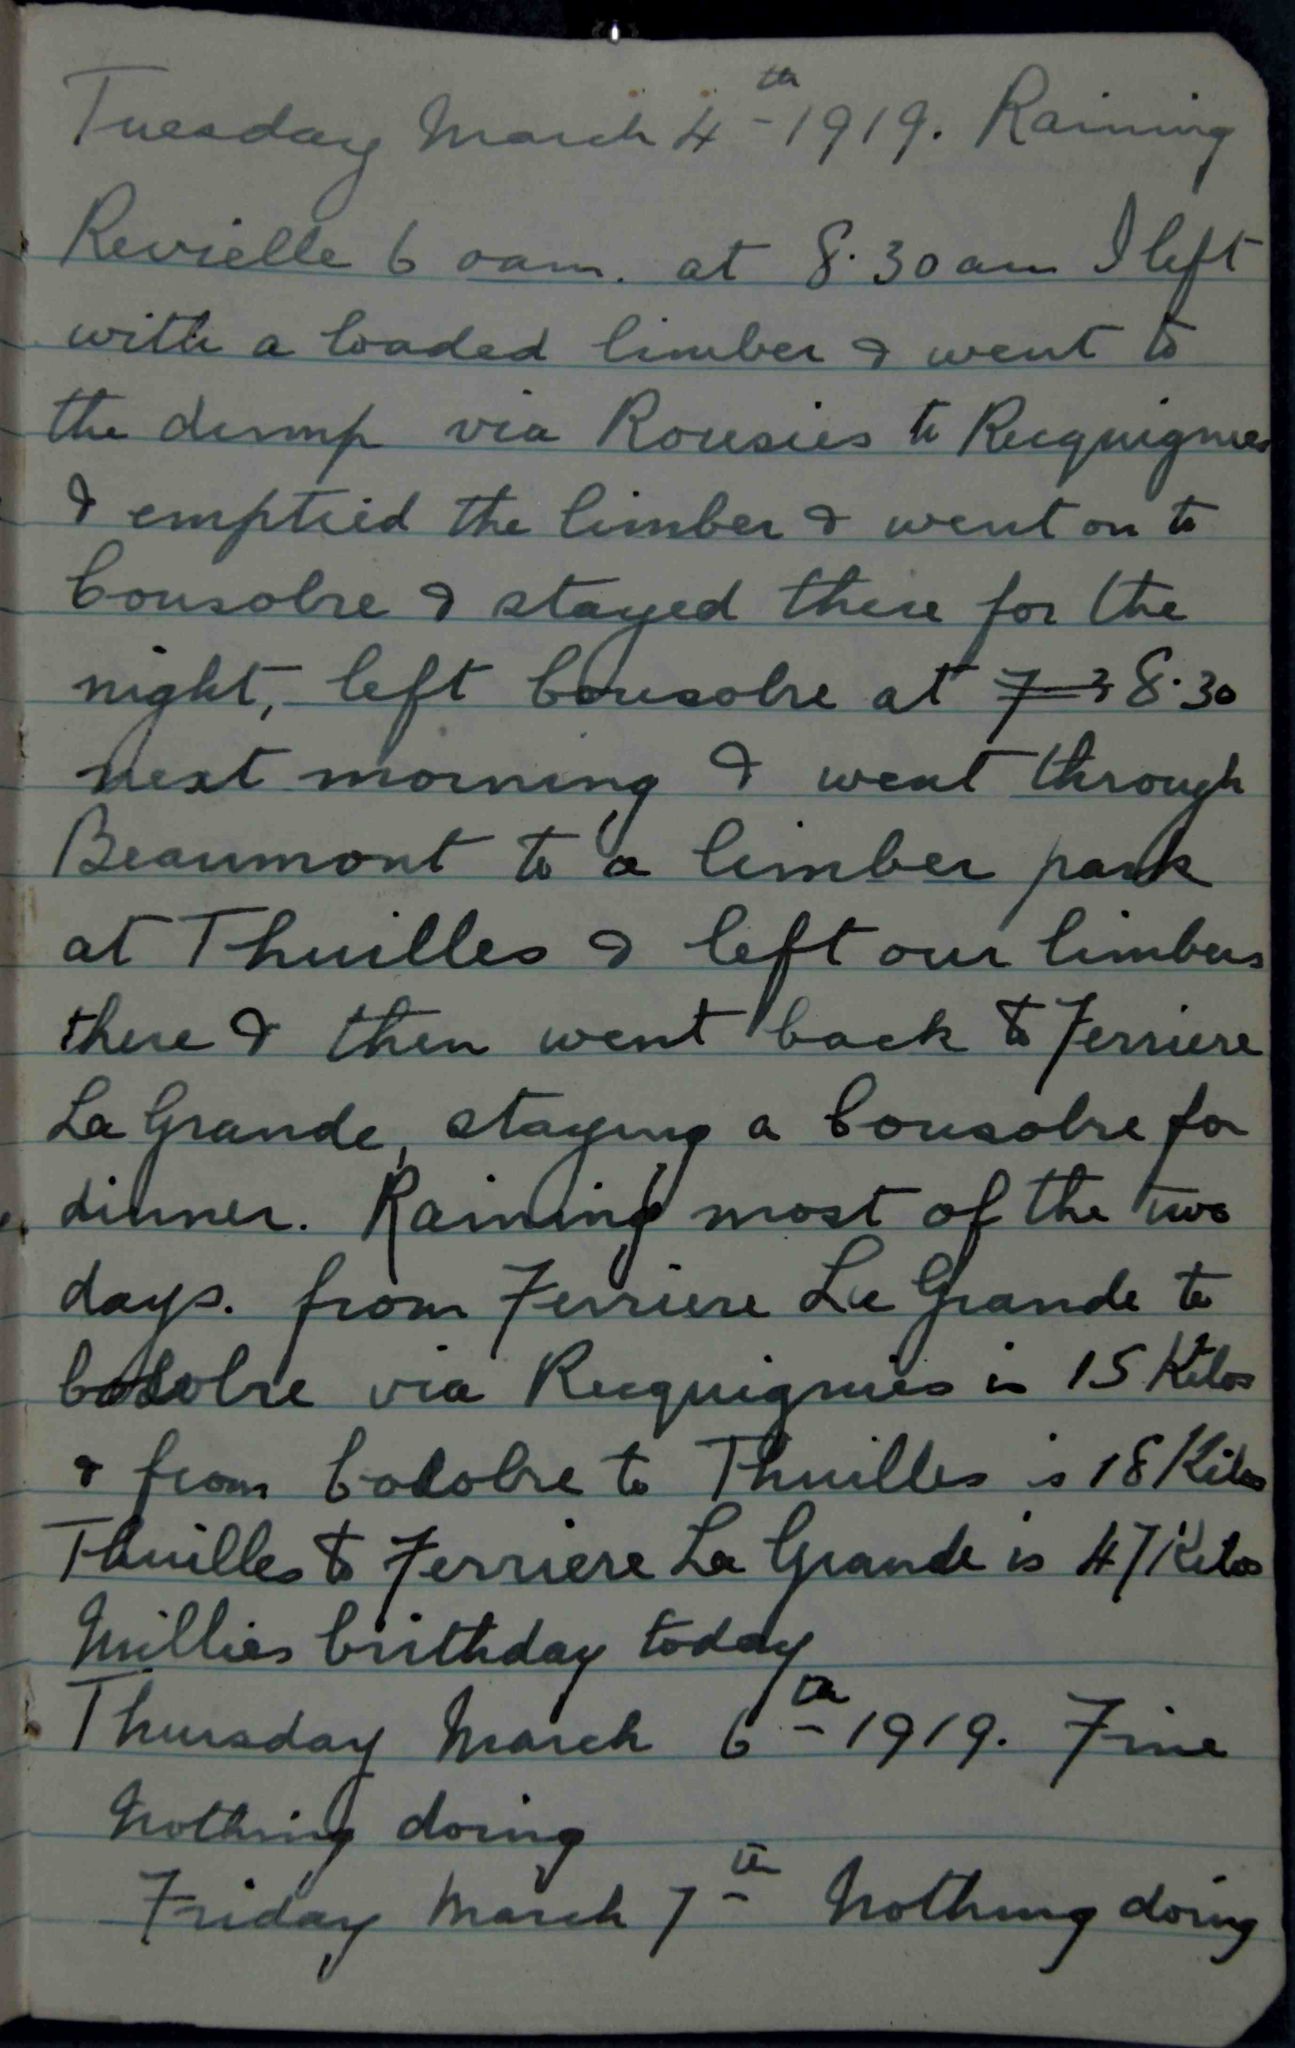 Tuesday March 4th 1919. Raining
Revielle 6 oam. at 8.30 am I left
with a loaded limber & went to
the dump via Rousies to Recquignies
& emptied the limber & went on to
Cousolre & stayed there for the
night, left Cousolre at 7-3 8.30
next morning & went through
Beaumont to a limber park
at Thuilles & left our limbers
there & then went back to Ferriere
La Grande, staying a Cousolre for
dinner. Raining most of the two
days. from Ferriere La Grande to
via Recquignies is 15 Kilos
& from to Thuilles is 18 Kilos
Thuilles to Ferriere La Grande is 47 Kilos
Millies birthday today
Thursday March 6th 1919. Fine
Nothing doing
Friday March 7th Nothing doing